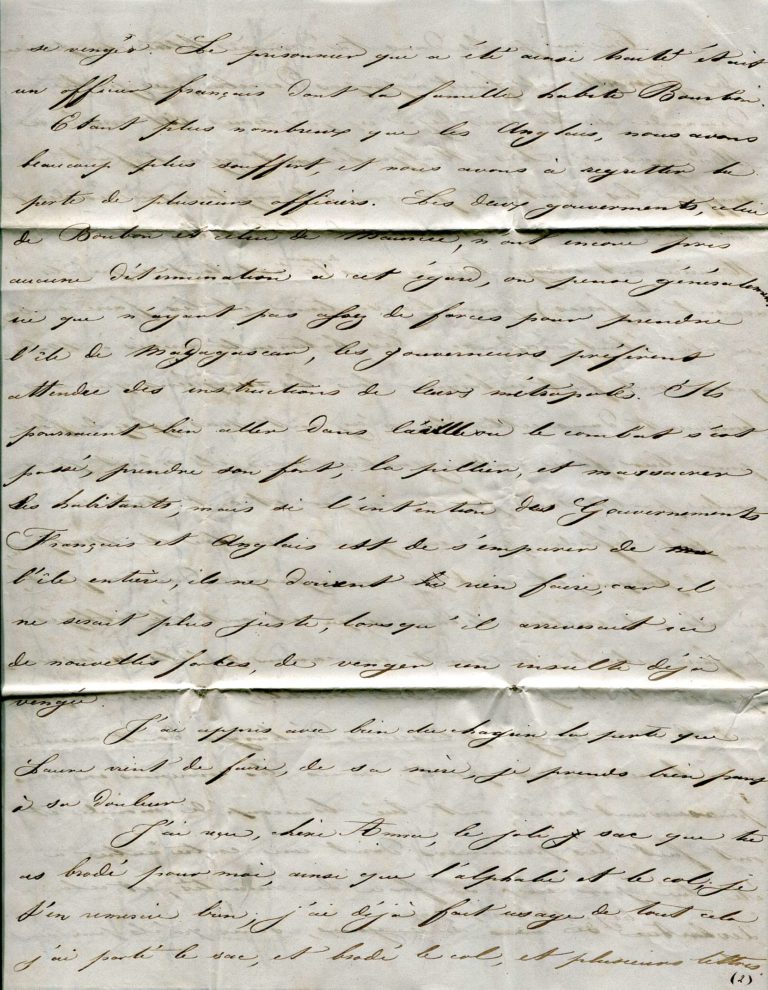 se venger. Le prisonnier qui a été ainsi traité était
un officier français dont la famille habite Bourbon.
Etant plus nombreux que les Anglais, nous avons
beaucoup plus souffert, et nous avons à regretter la
perte de plusieurs officiers. Les deux gouverments, celui
de Boubon et celui de Maurice, n'ont encore pris
aucune détermination à cet égard, on pense généralement
ici que n'ayant pas assez de forces pour prendre
l'île de Madagascar, les gouverneurs préfèrent
attendre des instructions de leurs métropole. Ils
pourraient bien aller dans la ville où le combat s'est
passé, prendre son fort, la piller, et massacrer
les habitants, mais si l'intention des Gouvernements
Français et Anglais est de s'emparer de
l'île entière, ils ne doivent rien faire, car il
ne serait plus juste, lorsqu'il arriverait ici
de nouvelles forces, de venger un insulte déjà
vengée.
J'ai appris avec bien du chagrin la perte que
Laure vient de faire, de sa mère, je prends bien part
à sa douleur
J'ai reçu, chère Anna, le joli sac que tu
as brodé pour moi, ainsi que l'alphabé et le col, je
t'en remercie bien, j'ai déjà fait usage de tout cela
j'ai porté le sac, et brodé le col, et plusieurs lettres.
(2)